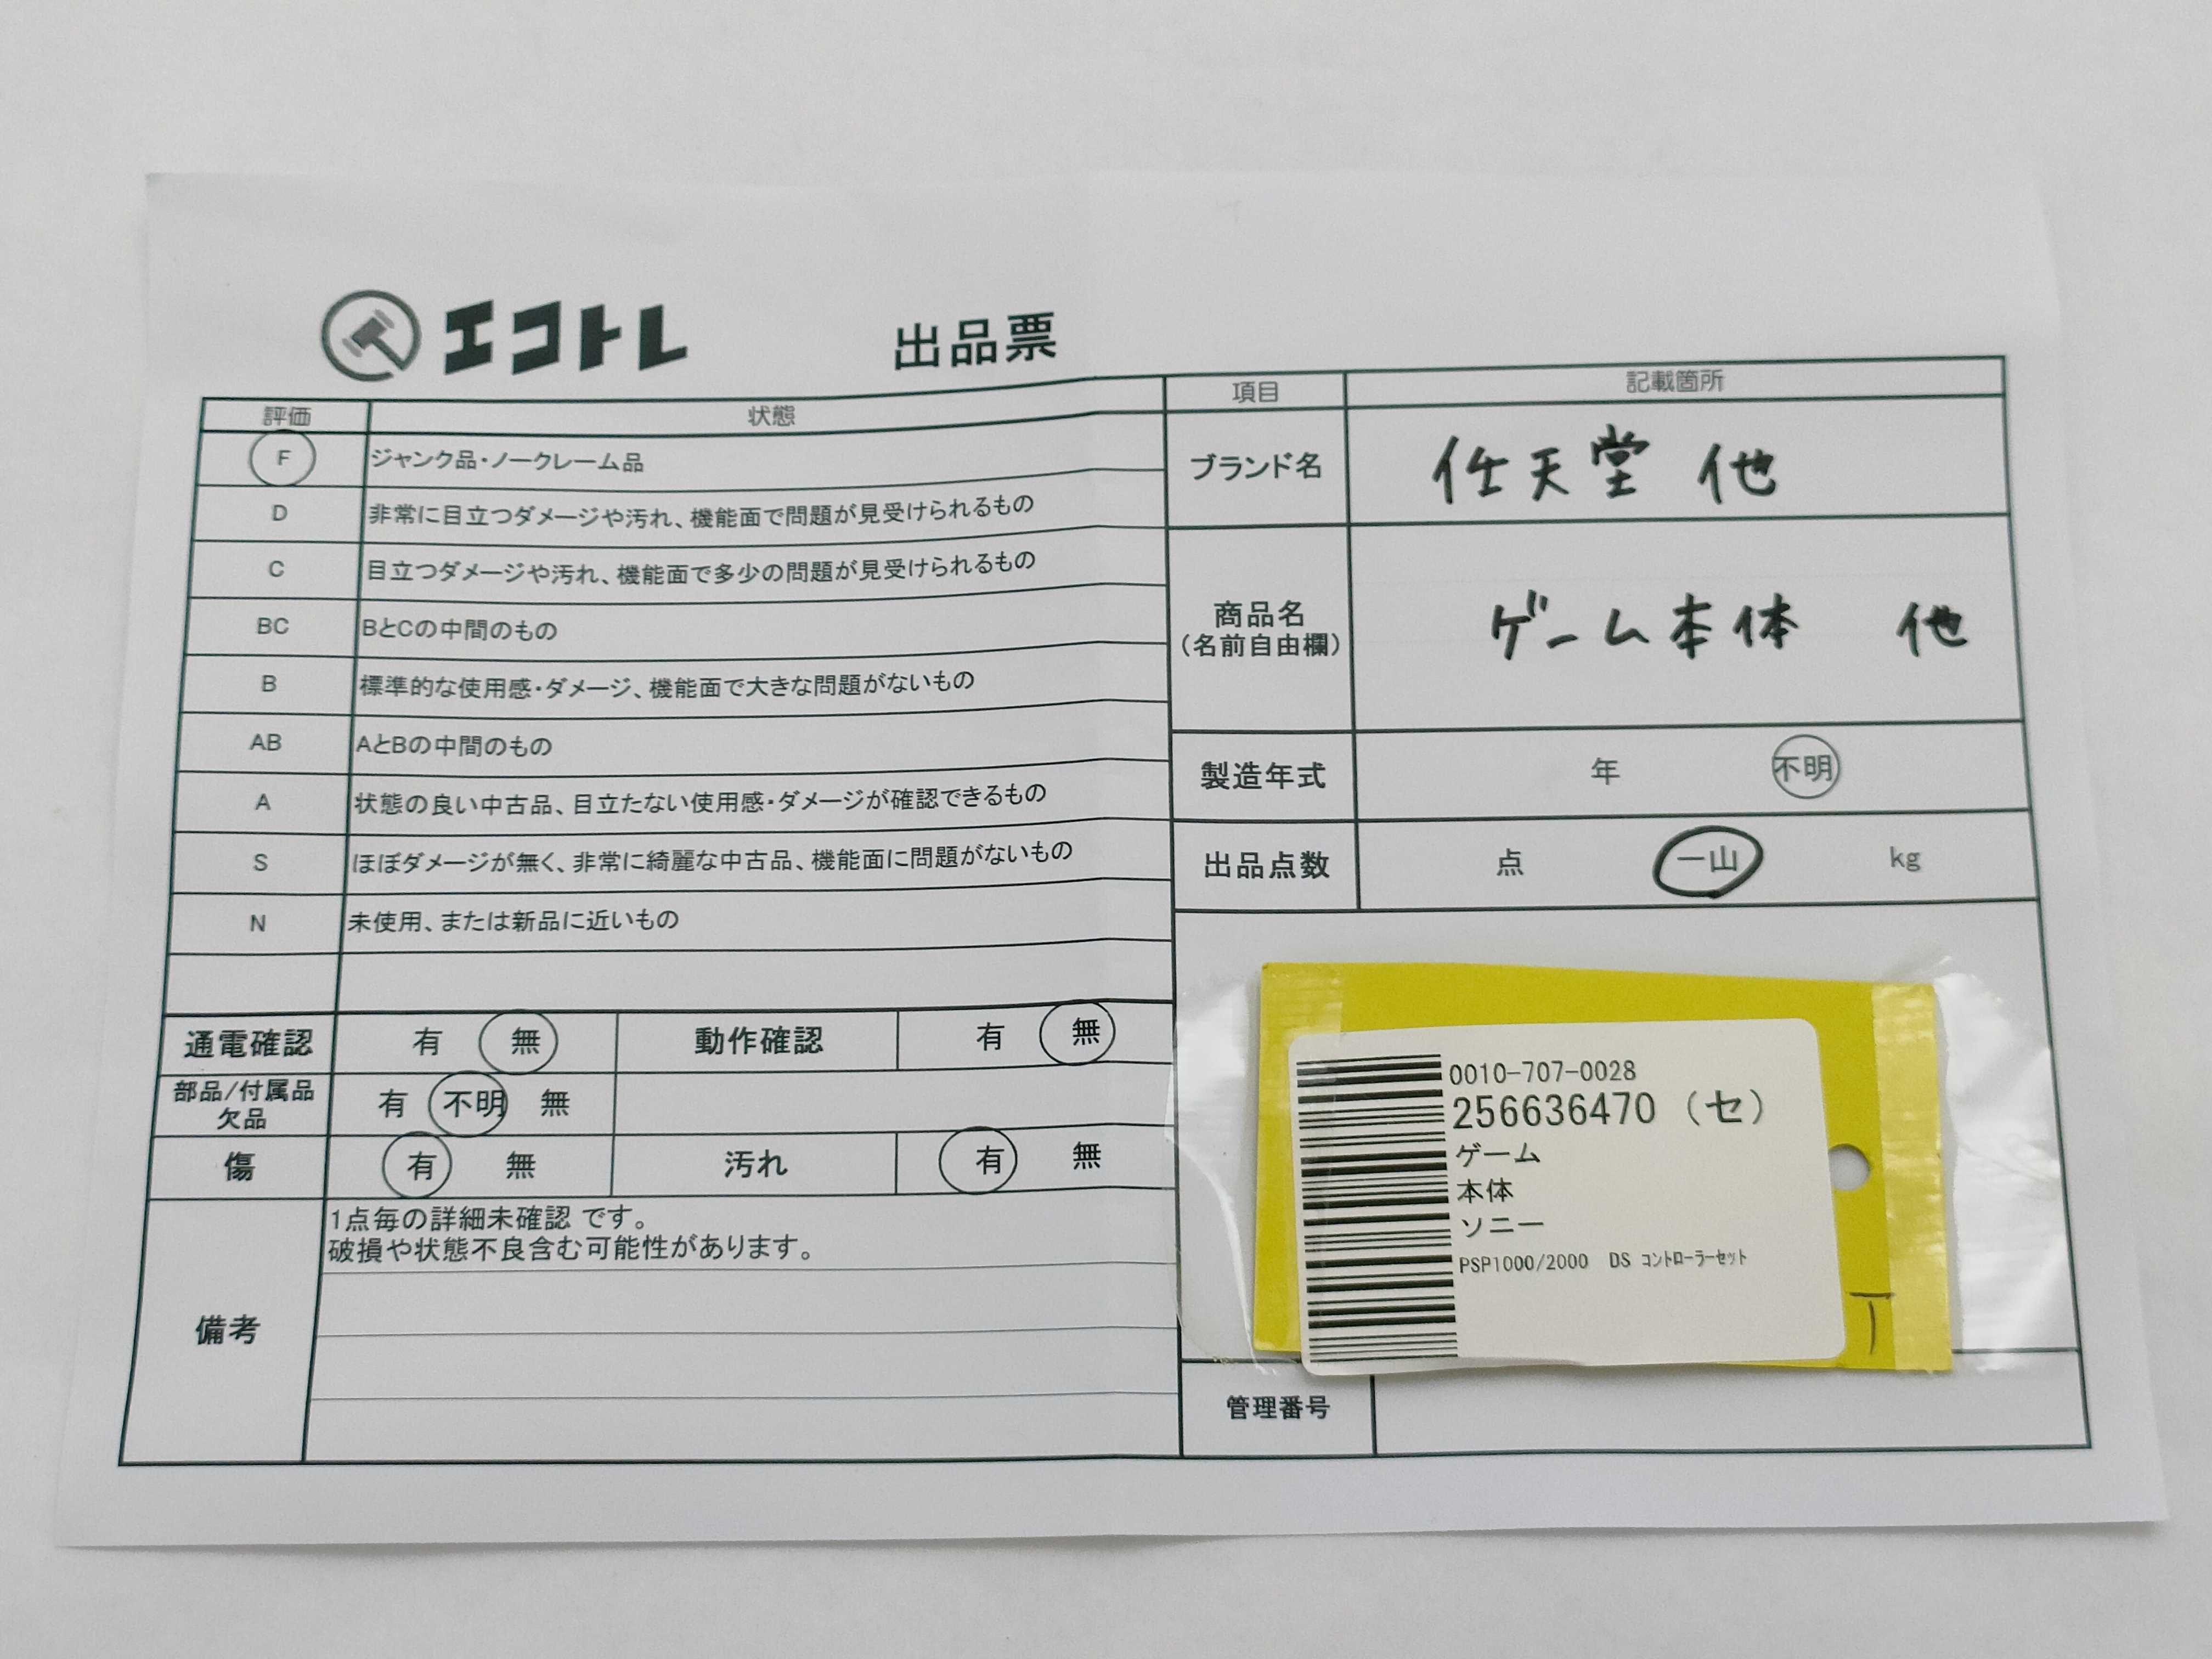 エコトレ
出品票
評価 状態
F ジャンク品・ノークレーム品
D 非常に目立つダメージや汚れ、機能面で問題が見受けられるもの
C 目立つダメージや汚れ、機能面で多少の問題が見受けられるもの
BC BとCの中間のもの
B 標準的な使用感・ダメージ、機能面で大きな問題がないもの
AB AとBの中間のもの
A 状態の良い中古品、目立たない使用感・ダメージが確認できるもの
S ほぼダメージが無く、非常に綺麗な中古品、機能面に問題がないもの
N 未使用、または新品に近いもの
通電確認 有 無 動作確認 有 無
部品/付属品
欠品 有 不明 無
傷 有 無 汚れ 有 無
備考
1点毎の詳細未確認 です。
破損や状態不良含む可能性があります。
項目 記載箇所
ブランド名 任天堂 他
商品名
(名前自由欄)
ゲーム本体 他
製造年式 年 不明
出品点数 点 一山 kg
0010-707-0028
256636470 (セ)
ゲーム
本体
ソニー
PSP1000/2000 DS コントローラーセット
管理番号